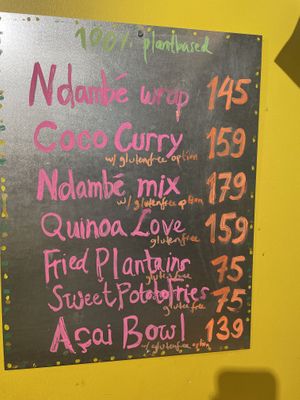 100% plantbased
Ndambé wrap 145
Coco Curry 159
w/ glutenfree option
Ndambé mix 179
w/ glutenfree option
Quinoa Love 159
glutenfree
Fried Plantains 75
glutenfree
Sweet Potato Fries 75
glutenfree
Açai Bowl 139
w/ glutenfree option